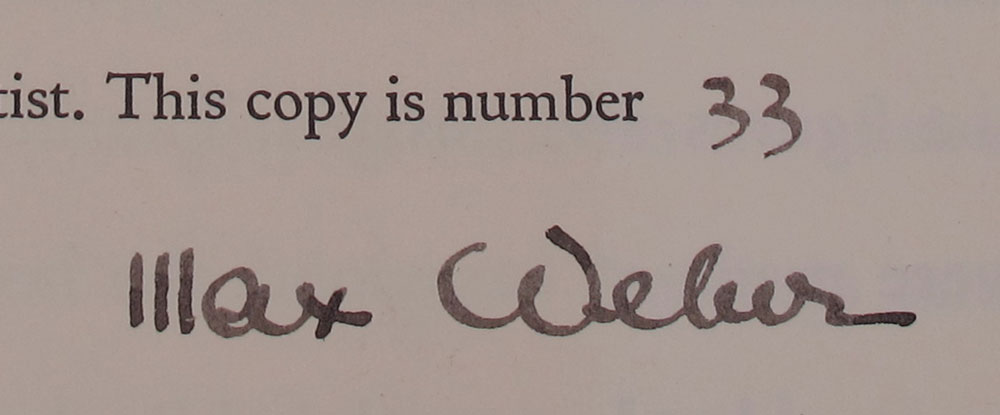 tist. This copy is number 33
Max Weber